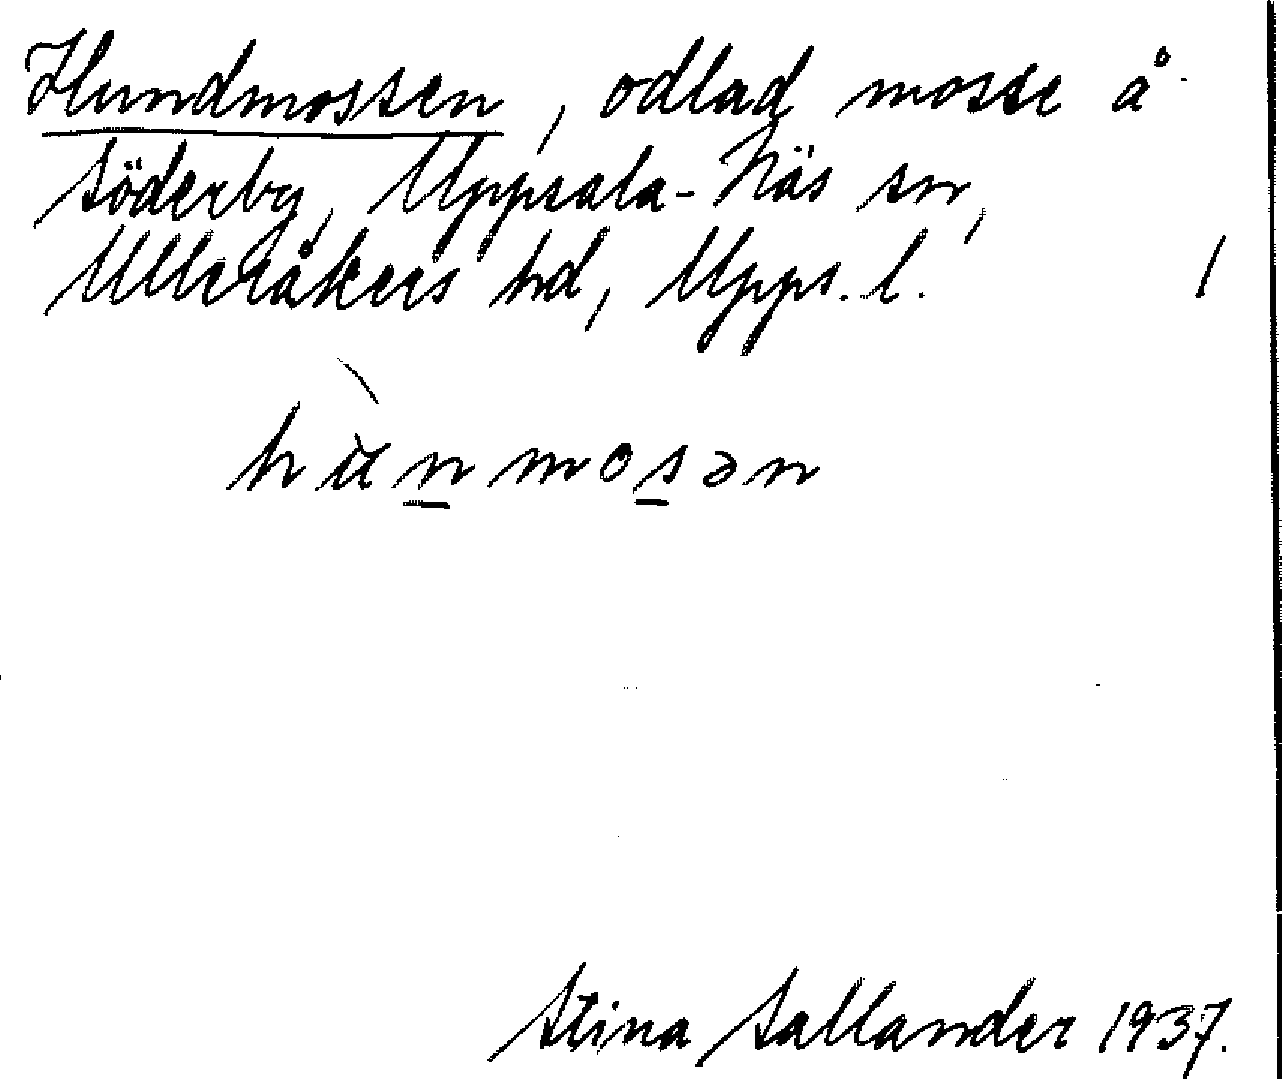 Hundmossen, odlad mosse å
Söderby, Uppsala-Näs sn,
Ulleråkers hd, Upps. l. /
hùnmosən
Stina Sallander 1937.